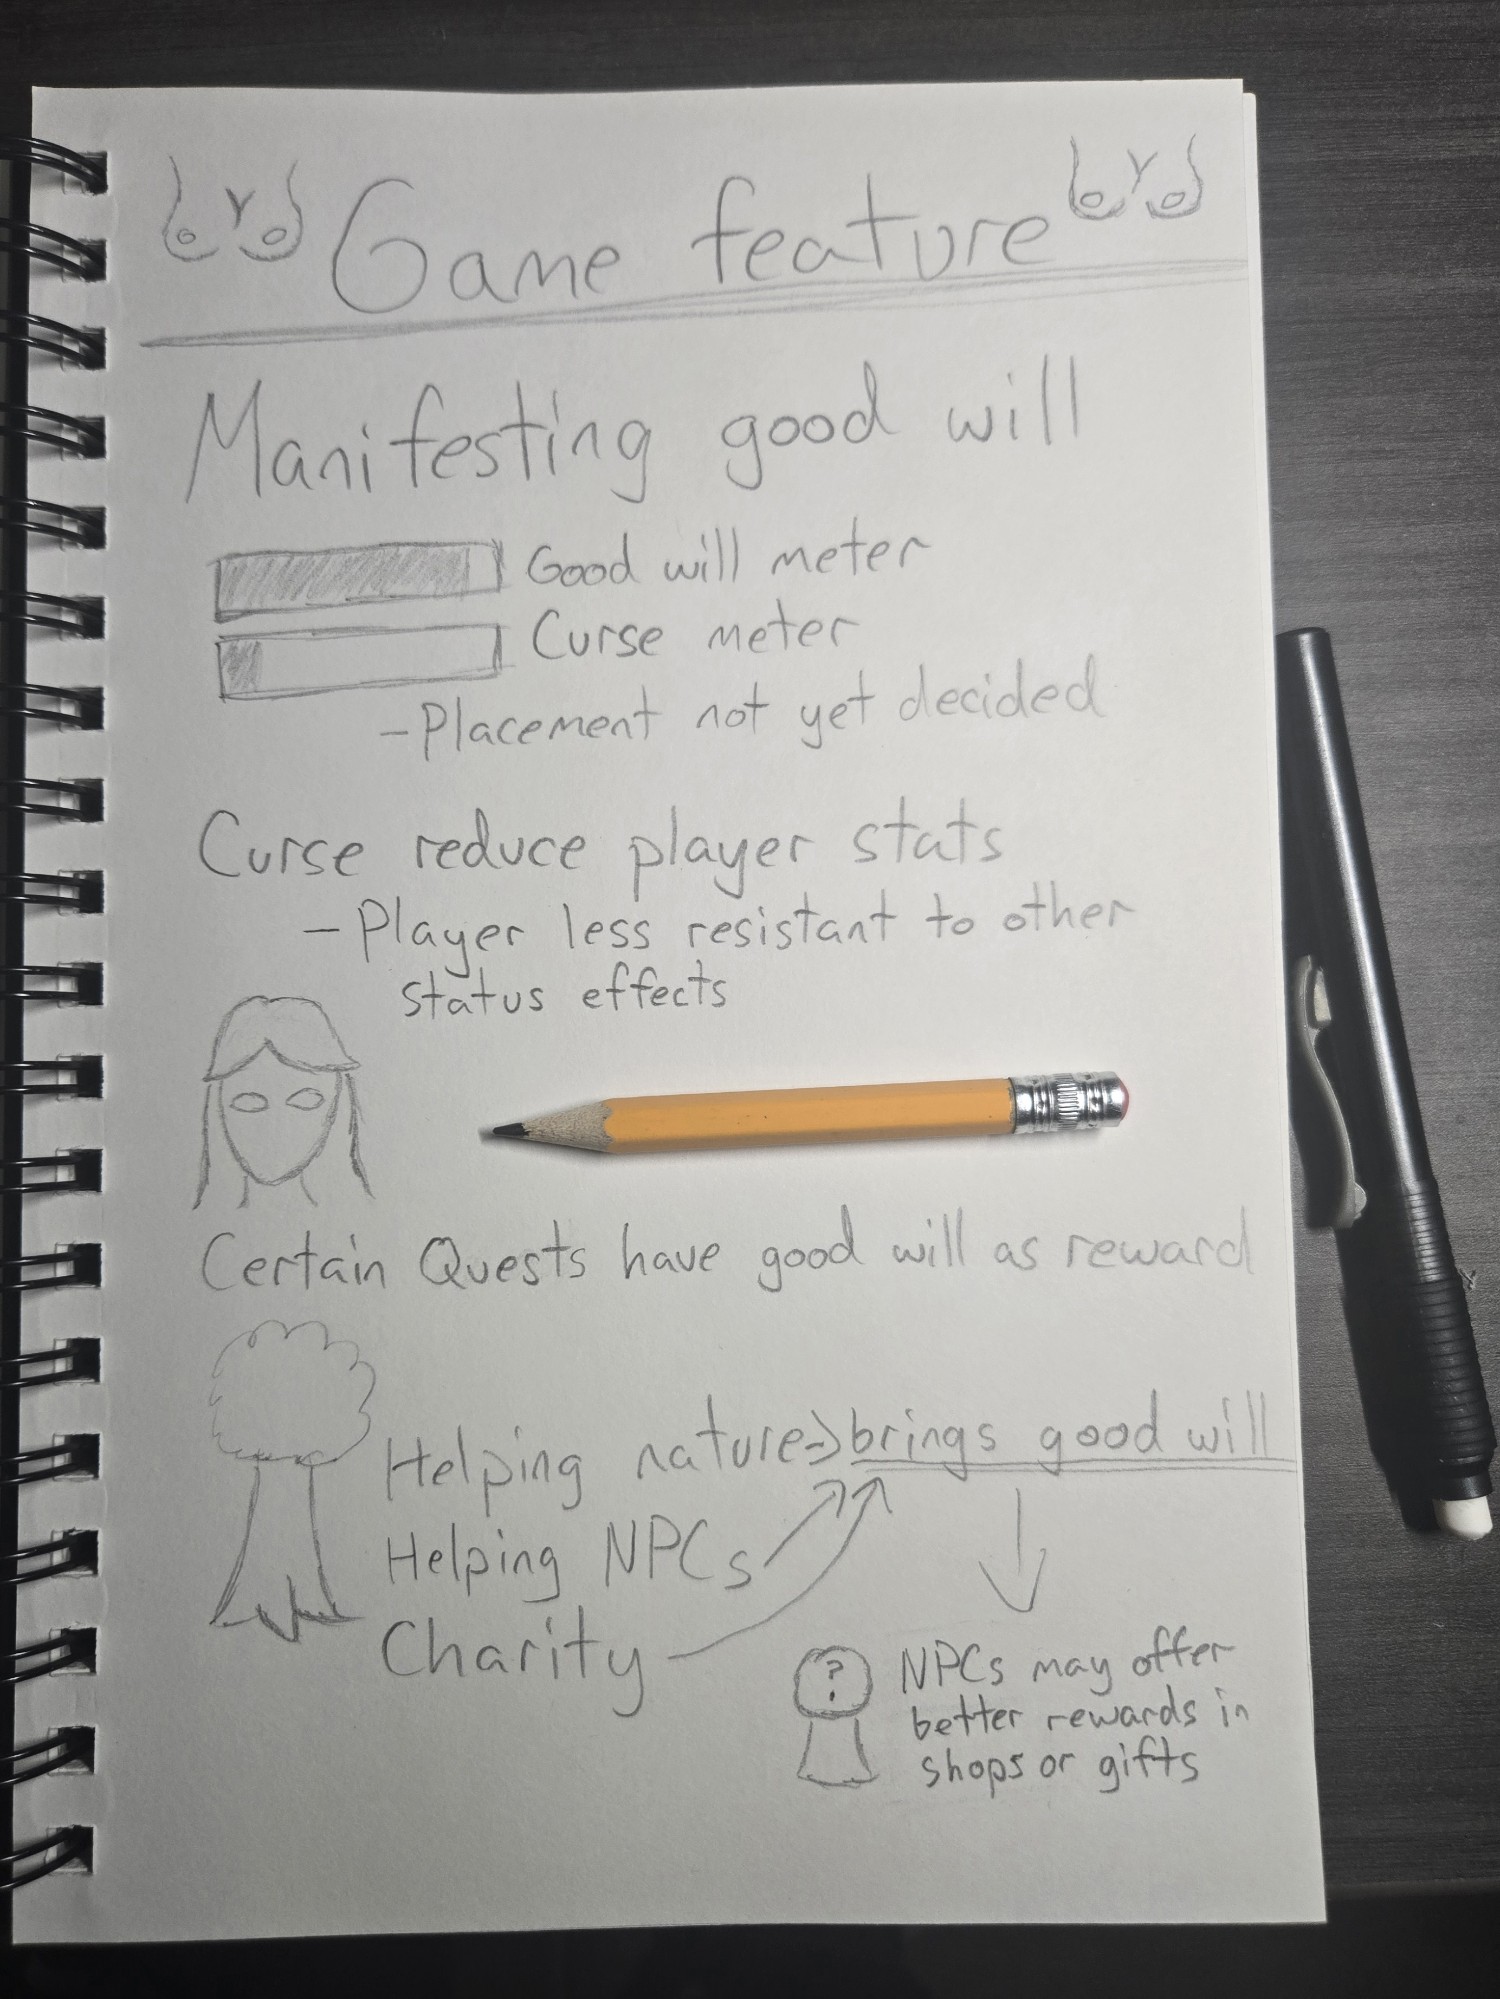 Game feature
Manifesting good will
Good will meter
Curse meter
- Placement not yet decided
Curse reduce player stats
- Player less resistant to other
status effects
Certain Quests have good will as reward
Helping nature => brings good will
Helping NPCs
Charity
?
NPCs may offer
better rewards in
shops or gifts